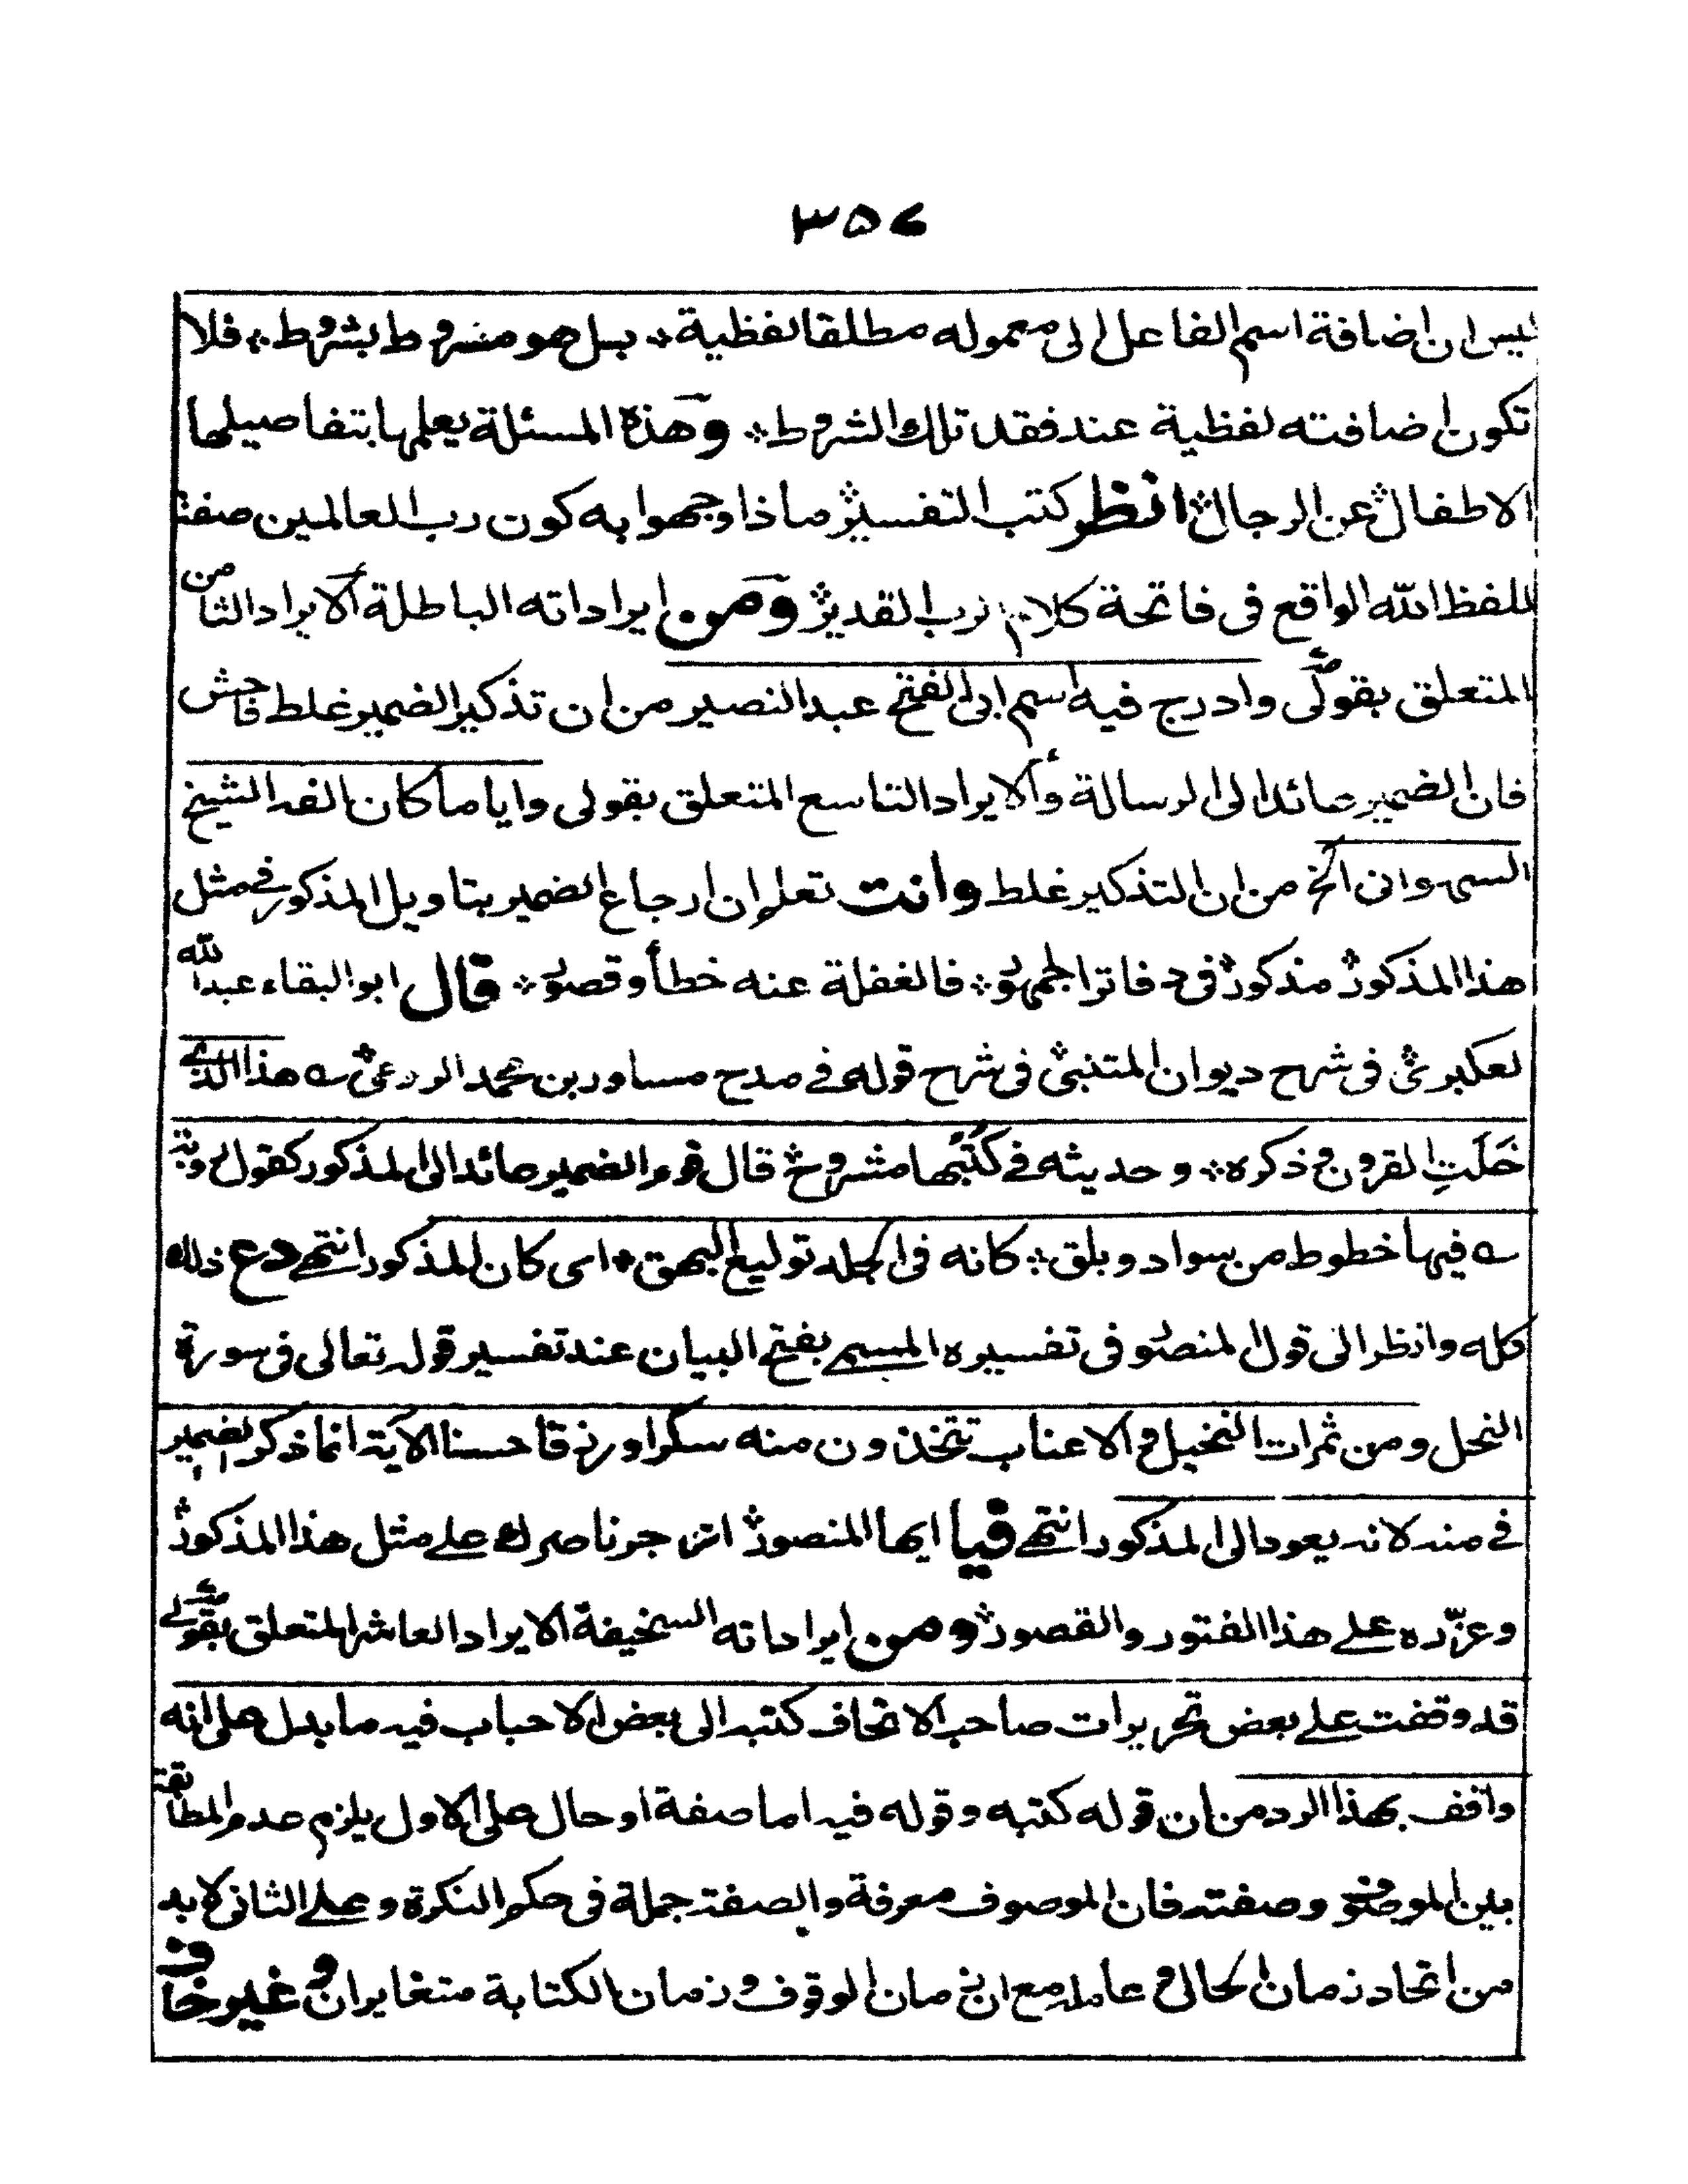 ٣٥٧
ليس ان اضافة اسم الفاعل الى معموله مطلقا لفظية ؞ بل هو مشروط بشروط ؞ فلا
تكون اضافته لفظية عند فقد تلك الشروط ؞ وهذه المسئلة يعلمها بتفاصيلها
الاطفال ؞ عن الرجال ؞ انظر كتب التفسير ؞ ماذا وجهوا به كون رب العالمين صفة
للفظ الله الواقع فى فاتحة كلام رب القدير ؞ ومن ايراداته الباطلة الايراد الثامن
المتعلق بقولى وادرج فيه اسم ابى الفتح عبد النصير من ان تذكير الضمير غلط فاحش
فان الضمير عائد الى الرسالة والايراد التاسع المتعلق بقولى واياما كان الفه الشيخ
السهسوانى الخ من ان التذكير غلط وانت تعلم ان ارجاع الضمير بتاويل المذكور فى مثل
هذا المذكور ؞ مذكور ؞ فى دفاتر الجمهور ؞ فالغفلة عنه خطأ وقصور ؞ قال ابو البقاء عبد الله
لعكبرى ؞ فى شرح ديوان المتنبى ؞ فى شرح قوله فے مدح مساور بن محمد الرومى ؞ ؎ هذا الذے
خَلَتِ القرون وذكره ؞ وحديثه فے كُتُبها مشروح ؞ قال قوم الضمير عائد الى المذكور كقول روبة
؎ فيها خطوط من سواد وبلق ؞ كانه فى الجلد توليع البهق ؞ اى كان المذكور انتهے دع ذلك
كله وانظر الى قول المنصور فى تفسيره المسمے بفتح البيان عند تفسير قوله تعالى فى سورة
النحل ومن ثمرات النخيل والاعناب تتخذون منه سكرا ورزقا حسنا الآية انما ذكر الضمير
فے منه لانه يعود الى المذكور انتهے فيا ايها المنصور ؞ ازجر ناصرك علے مثل هذا المذكور ؞
وعزّره علے هذا الفتور والقصور ؞ ومن ايراداته السخيفة الايراد العاشر المتعلق بقولے
قد وقفت علے بعض تحريرات صاحب الاتحاف كتبه الى بعض الاحباب فيه ما يدل على انه
واقف بهذا الرد من ان قوله كتبه وقوله فيه اما صفة او حال على الاول يلزم عدم المطابقة
بين الموصوف وصفته فان الموصوف معرفة والصفة جملة فى حكم النكرة وعلے الثانى لابد
من اتحاد زمان الحال وعامله مع ان زمان الوقوف وزمان الكتابة متغايران وغير خاف